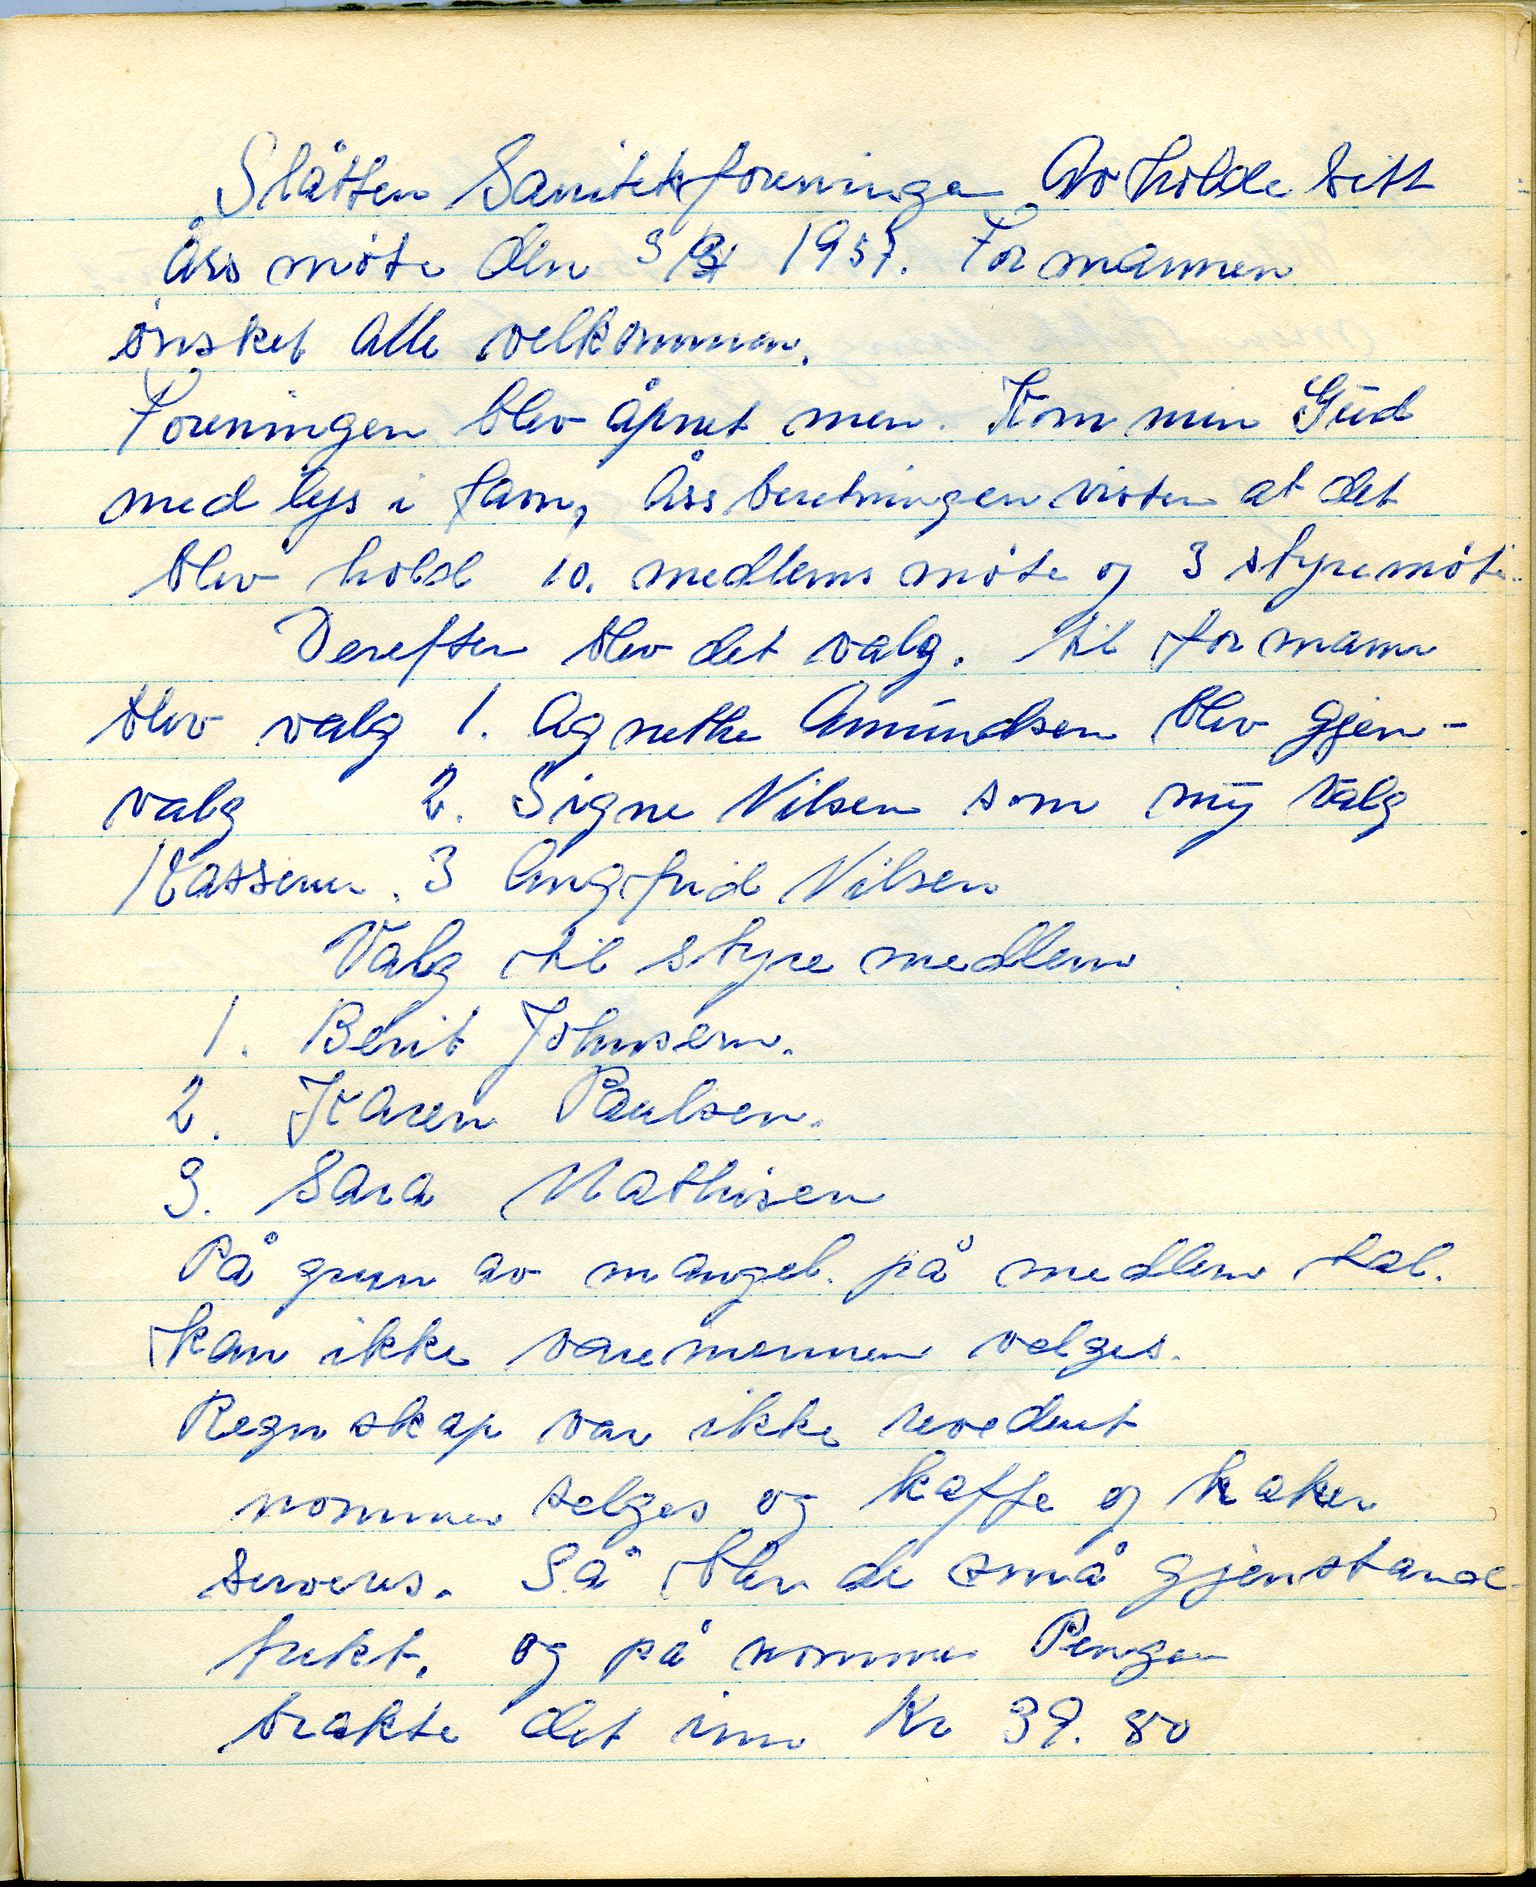 Slåtten Sanitetsforeninge Avholde sitt
Åss møte den 3/3 1957. Formannen
ønsket Alle velkommen.
Foreningen blev åpnet men. Kom min Gud
med lys i favn, Åss beretningen visten at det
blev hold 10. medlems møte og 3 styremøte
Derefter blev det valg. til formann
blev valg 1. Agnethe Amundsen blev gjen-
valg 2. Signe Nilsen som ny valg
Kasserer. 3 Angfrid Nilsen
Valg til styre medlem
1. Berit Johnsen.
2. Karen Paulsen.
3. Sara Mathisen
På grun av mangel. på medlem tal.
kan ikke varemennen velges.
Regnskap var ikke revedert
nommer selges og kaffe og kaker
serveres. Så blev de små gjenstande
trekt. og på nommer Penger
brakte det inn Kr 39.80